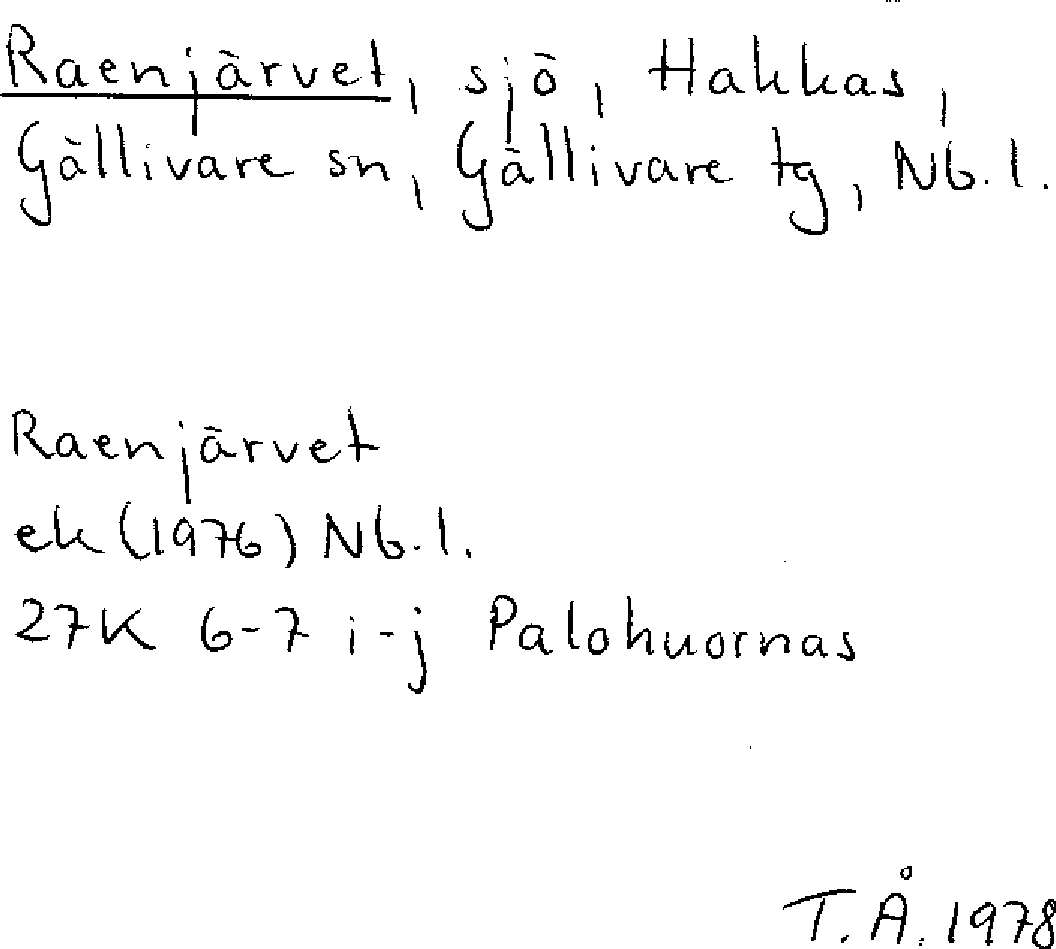 Raenjärvet, sjö, Hakkas,
Gällivare sn, Gällivare tg, Nb.l.
Raenjärvet
ek (1976) Nb.l.
27K 6-7 i-j Palohuornas
T.Å. 1978